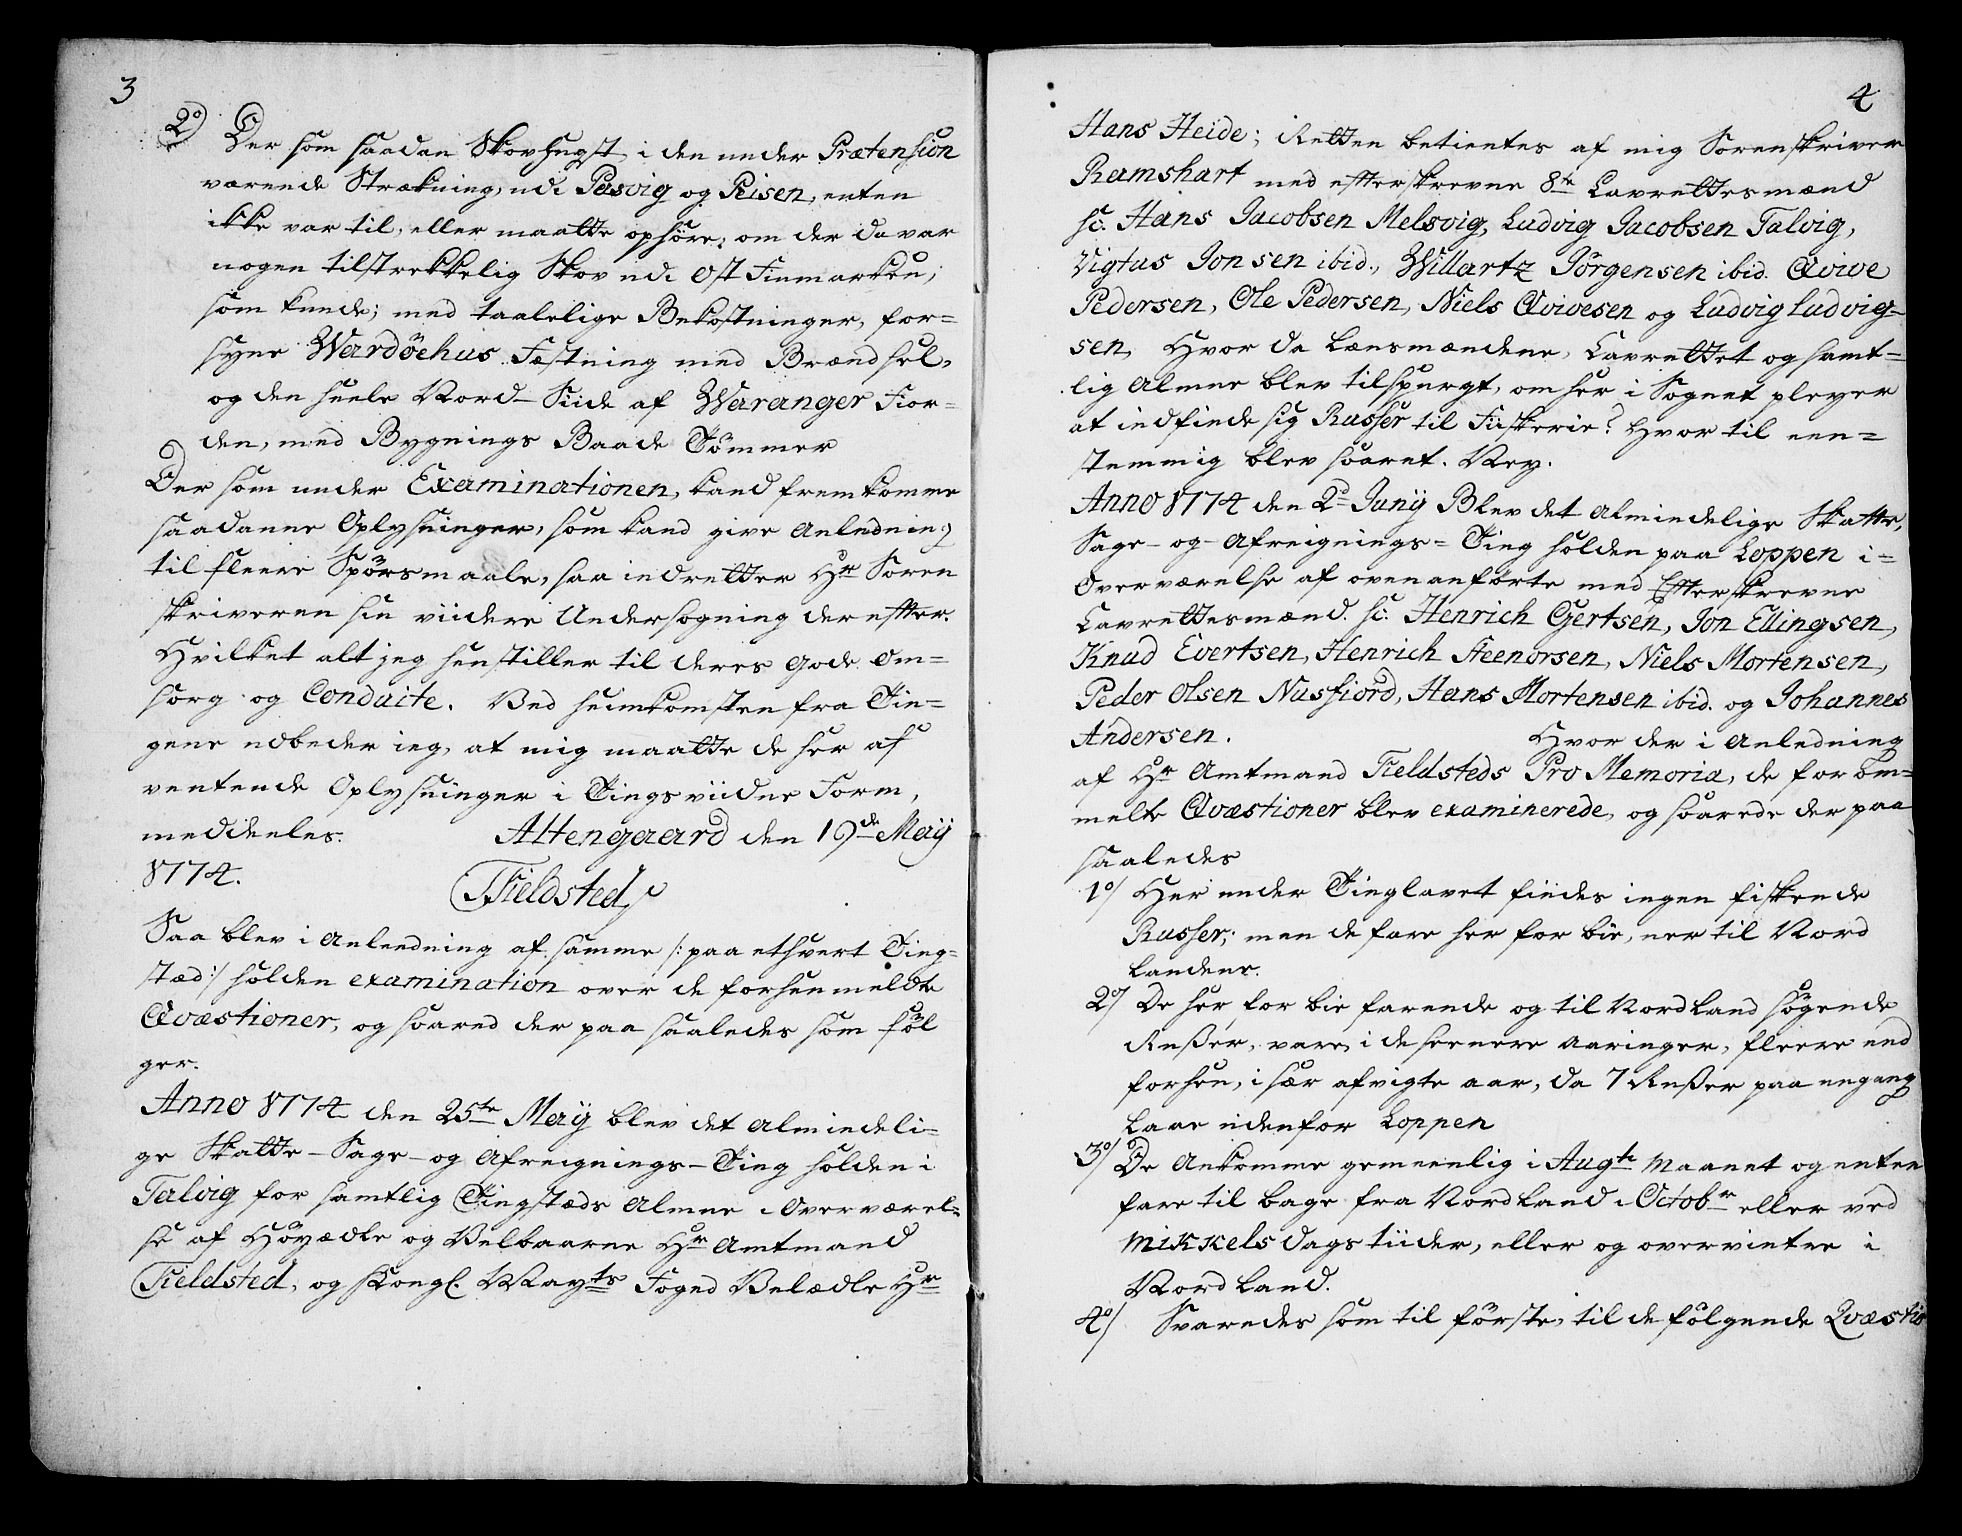 3
2º) Der som saadan Skovhugst, i den under Prætension
værende Strækning, udi Pasvig og Peisen, enten
ikke var til, eller maatte ophøre; om der da var
nogen tilstrekkelig Skov udi Ost Finmarken,
som kunde, med taalelige Bekostninger, for=
syne Wardöehus Fæstning med Brændsel,
og den heele Nord-Siide af Waranger Fior=
den, med Bygnings Baade Tömmer
Der som under Examinationen, kand fremkomme
saadanne Oplysninger, som kand give Anledning
til fleere Spörsmaale, saa indretter Hr Soren
skriveren sin viidere Undersogning der efter.
Hvilket alt jeg henstiller til deres Gode Om=
sorg og Conduite. Ved heimkomsten fra Tin=
gene udbeder ieg, at mig maatte de her af
ventende Oplysninger i Tings viidne Form,
meddeeles. Altengaard den 19de Maÿ
1774.
Fieldsted
Saa blev i Anleedning af samme /: paa ethvert Ting=
stæd :/ holden examination over de forhenmeldte
Qvæstioner, og svared der paa saaledes som föl
ger.
Anno 1774 den 25te Maÿ blev det Almindeli=
ge Skatte-Sage-og Afreignings-Ting holden i
Talvig for samtlig Tingstæds Almue i Overværel=
se af Höyædle og Velbaarne Hr Amtmand
Fieldsted, og Kongl. Mayts Foged Velædle Hr
4
Hans Heide; Retten betientes af mig Sorenskriver
Ramshart med efterskrevne 8te Lavrettesmænd
sc: Hans Jacobsen Melsvig, Ludvig Jacobsen Talvig,
Vigtus Jonsen ibid., Willartz Jörgensen ibid. Qvive
Pedersen, Ole Pedersen, Niels Qvivesen og Ludvig Ludvig=
sen, Hvor da Lænsmændene, Lavrettet og samt=
lig Almue blev tilspurgt, om her i Sognet pleyer
at indfinde sig Russer til Fiskerie? Hvor til een=
stemmig blev svaret. Ney.
Anno 1774 den 2d Junÿ Blev det Almindelige Skatte,
Sage-og-Afreignings=Ting holden paa Loppen i=
Overværelse af ovenanförte med Efterskrevne
Lavrettesmænd. sc: Henrich Gertsen, Jon Ellingsen,
Knud Evertsen, Henrich Steenorsen, Niels Mortensen,
Peder Olsen Nusfiord, Hans Mortensen ibid. og Johannes
Andersen. Hvor der i Anledning
af Hr Amtmand Fieldsteds Pro Memoria, de foröm=
melte Qvæstioner blev examinerede, og svarede der paa
saaledes
1º/ Her under Tinglavet findes ingen fiskende
Russer; men de fare her for bie, ner til Nord
Landene.
2º/ De her for bie farende og til Nordland sögende
Rußer, vare i de seenere Aaringer, fleere end
forhen, i sær afvigte aar, da 7 Rußer paa engang
Laae udenfor Loppen
3º/ De Ankomme gemeenlig i Augti Maanet og enten
fare til bage fra Nordland i Octobr eller ved
Mikkels dags tiider, eller og overvinter i
Nordland.
4º/ Svaredes som til förste, til de fölgende Qvæstio